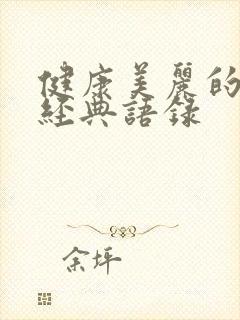 健康美麗的
經典語錄
余坪